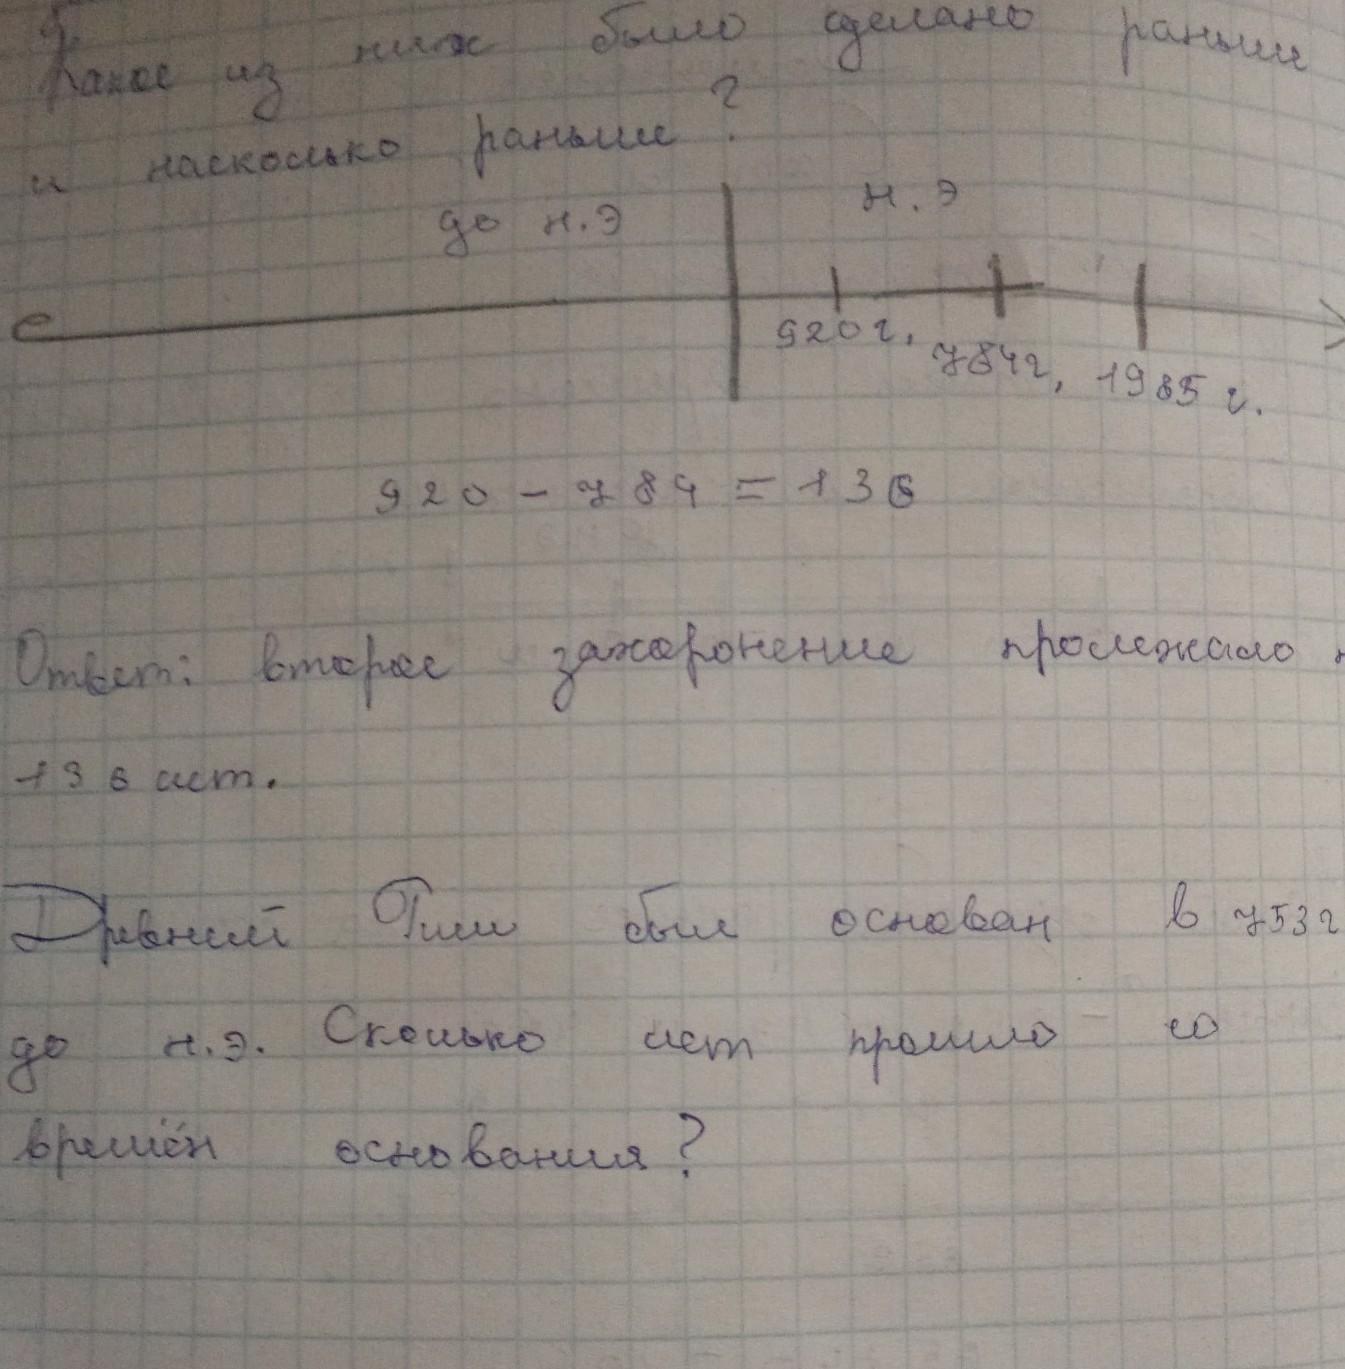 Какое из них было сделано раньше
и насколько раньше?
до н.э н.э
920г. 784г, 1985 г.
920 - 784 = 136
Ответ: второе захоронение пролежало
136 лет.
Древний Рим был основан в 753г
до н.э. Сколько лет прошло со
времён основания?